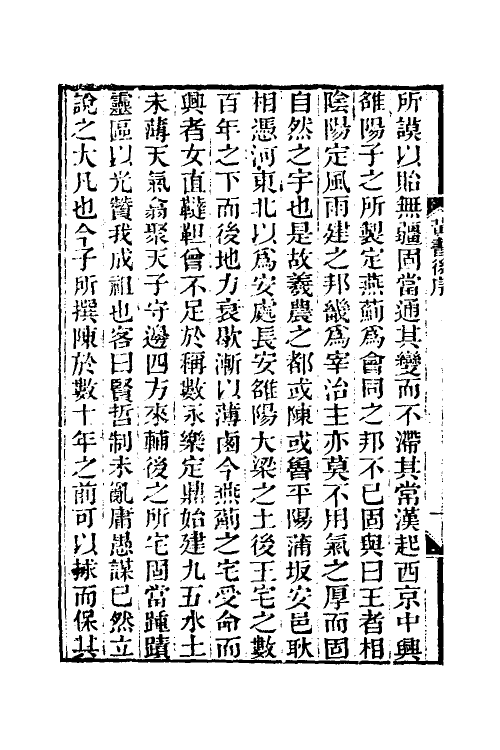 黃書後序
所謨以貽無疆固當通其變而不滯其常漢起西京中興
雒陽子之所製定燕薊爲會同之邦不已固與曰王者相
陰陽定風雨建之邦畿爲宰治主亦莫不用氣之厚而固
自然之宇也是故羲農之都或陳或魯平陽蒲坂安邑耿
相憑河東北以爲安處長安雒陽大梁之土後王宅之數
百年之下而後地力衰歇漸以薄鹵今燕薊之宅受命而
興者女直韃靼曾不足於稱數永樂定鼎始建九五水土
未薄天氣翕聚天子守邊四方來輔後之所宅固當踵蹟
靈區以光贊我成祖也客曰賢哲制未亂庸愚謀已然立
說之大凡也今子所撰陳於數十年之前可以捄而保其